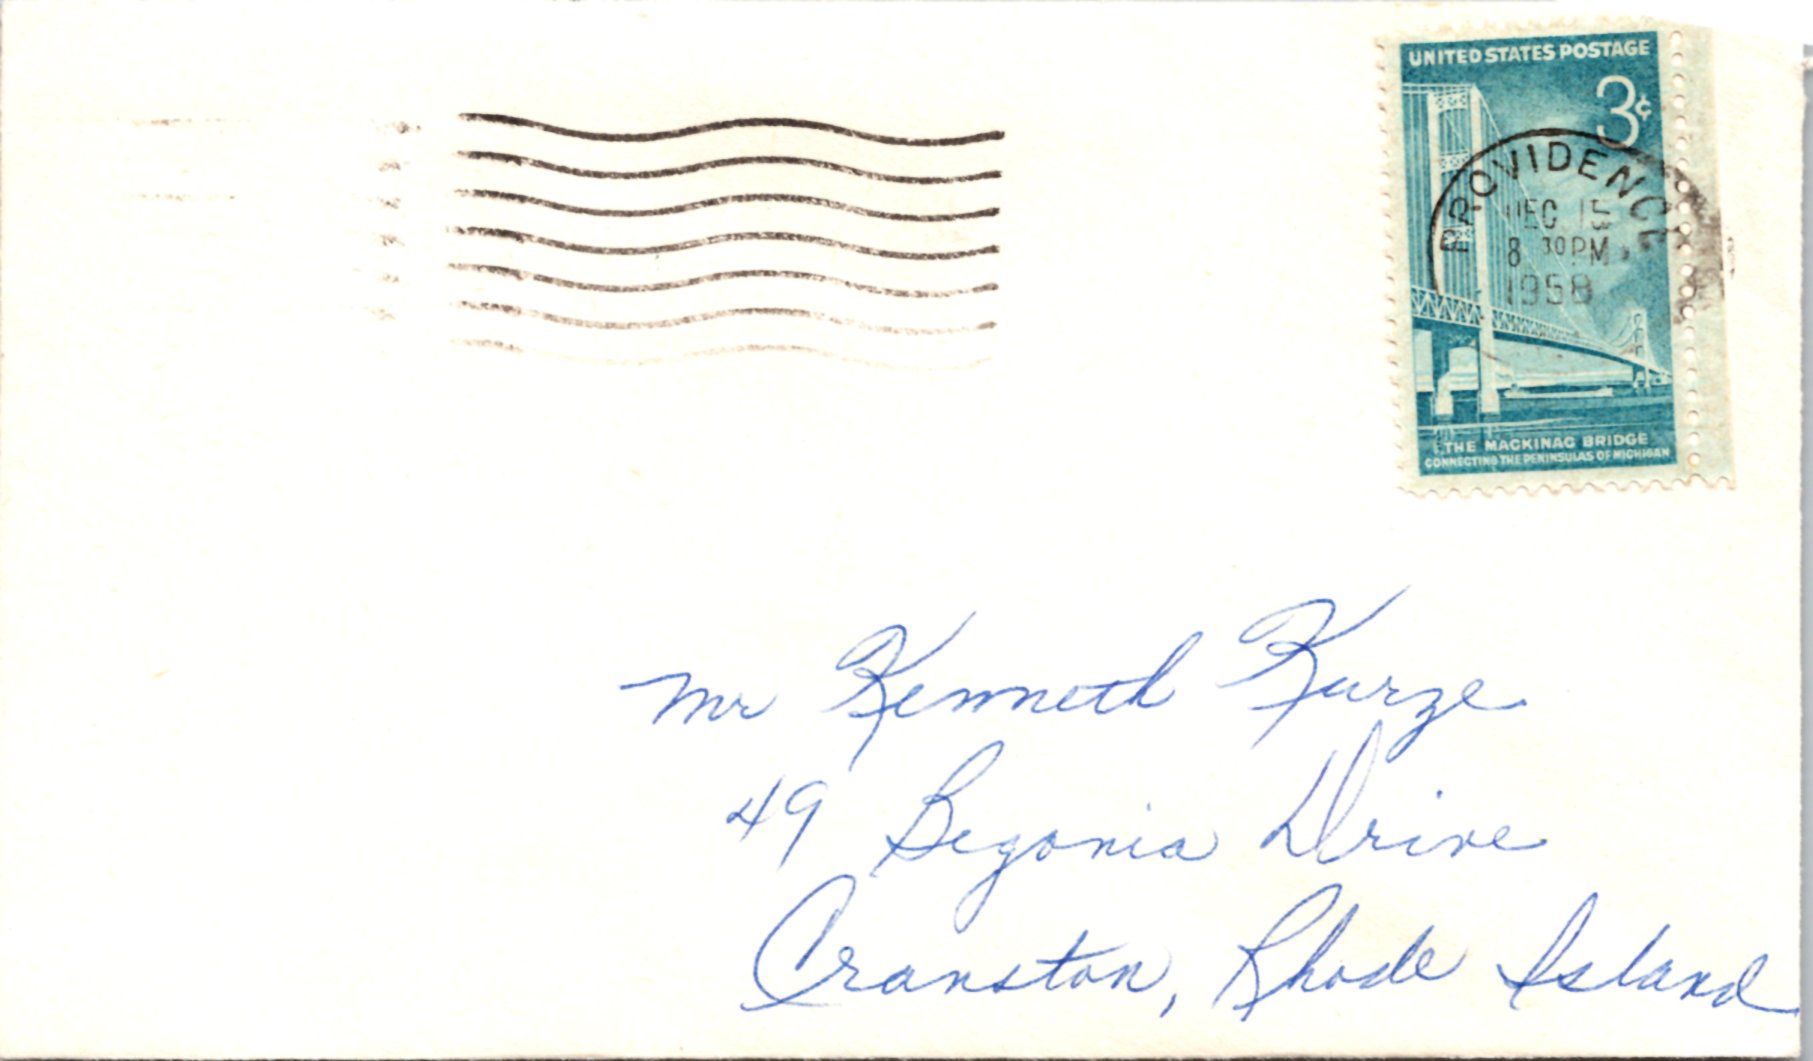 UNITED STATES POSTAGE
3¢
PROVIDENCE
DEC 15
8 30 PM
1958
THE MACKINAC BRIDGE
CONNECTING THE PENINSULAS OF MICHIGAN
Mr Kenneth Kurze
49 Begonia Drive
Cranston, Rhode Island